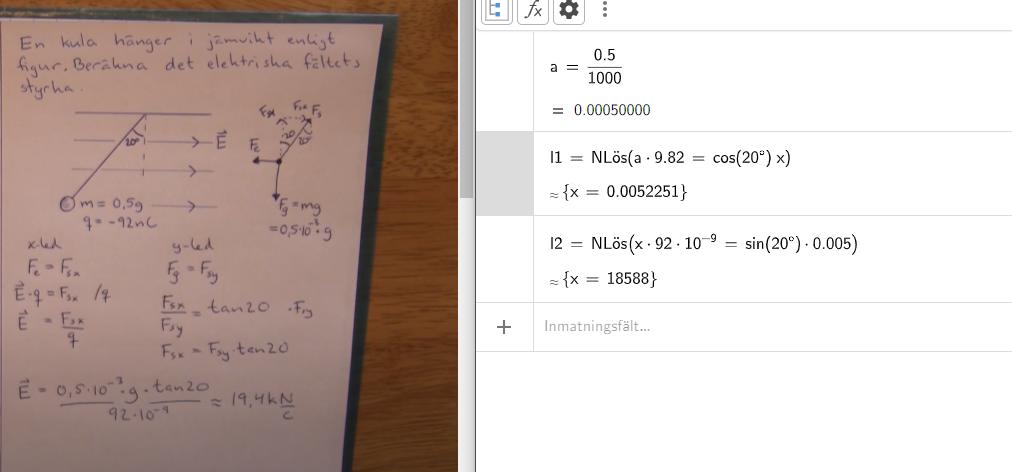 En kula hänger i jämvikt enligt
figur. Beräkna det elektriska fältets
styrka.
20°
E⃗
m = 0,5g
q = -92nC
Fsx Fsx Fs
20 20°
Fe
Fg = mg
= 0,5·10⁻³·g
x-led
Fe = Fsx
E⃗·q = Fsx /q
E⃗ = Fsx/q
y-led
Fg = Fsy
Fsx/Fsy = tan20 ·Fsy
Fsx = Fsy·tan20
E⃗ = 0,5·10⁻³·g·tan20 / 92·10⁻⁹ ≈ 19,4k N/C
fx
a = 0.5/1000
= 0.00050000
l1 = NLös(a · 9.82 = cos(20°) x)
≈ {x = 0.0052251}
l2 = NLös(x · 92 · 10⁻⁹ = sin(20°) · 0.005)
≈ {x = 18588}
+ Inmatningsfält...